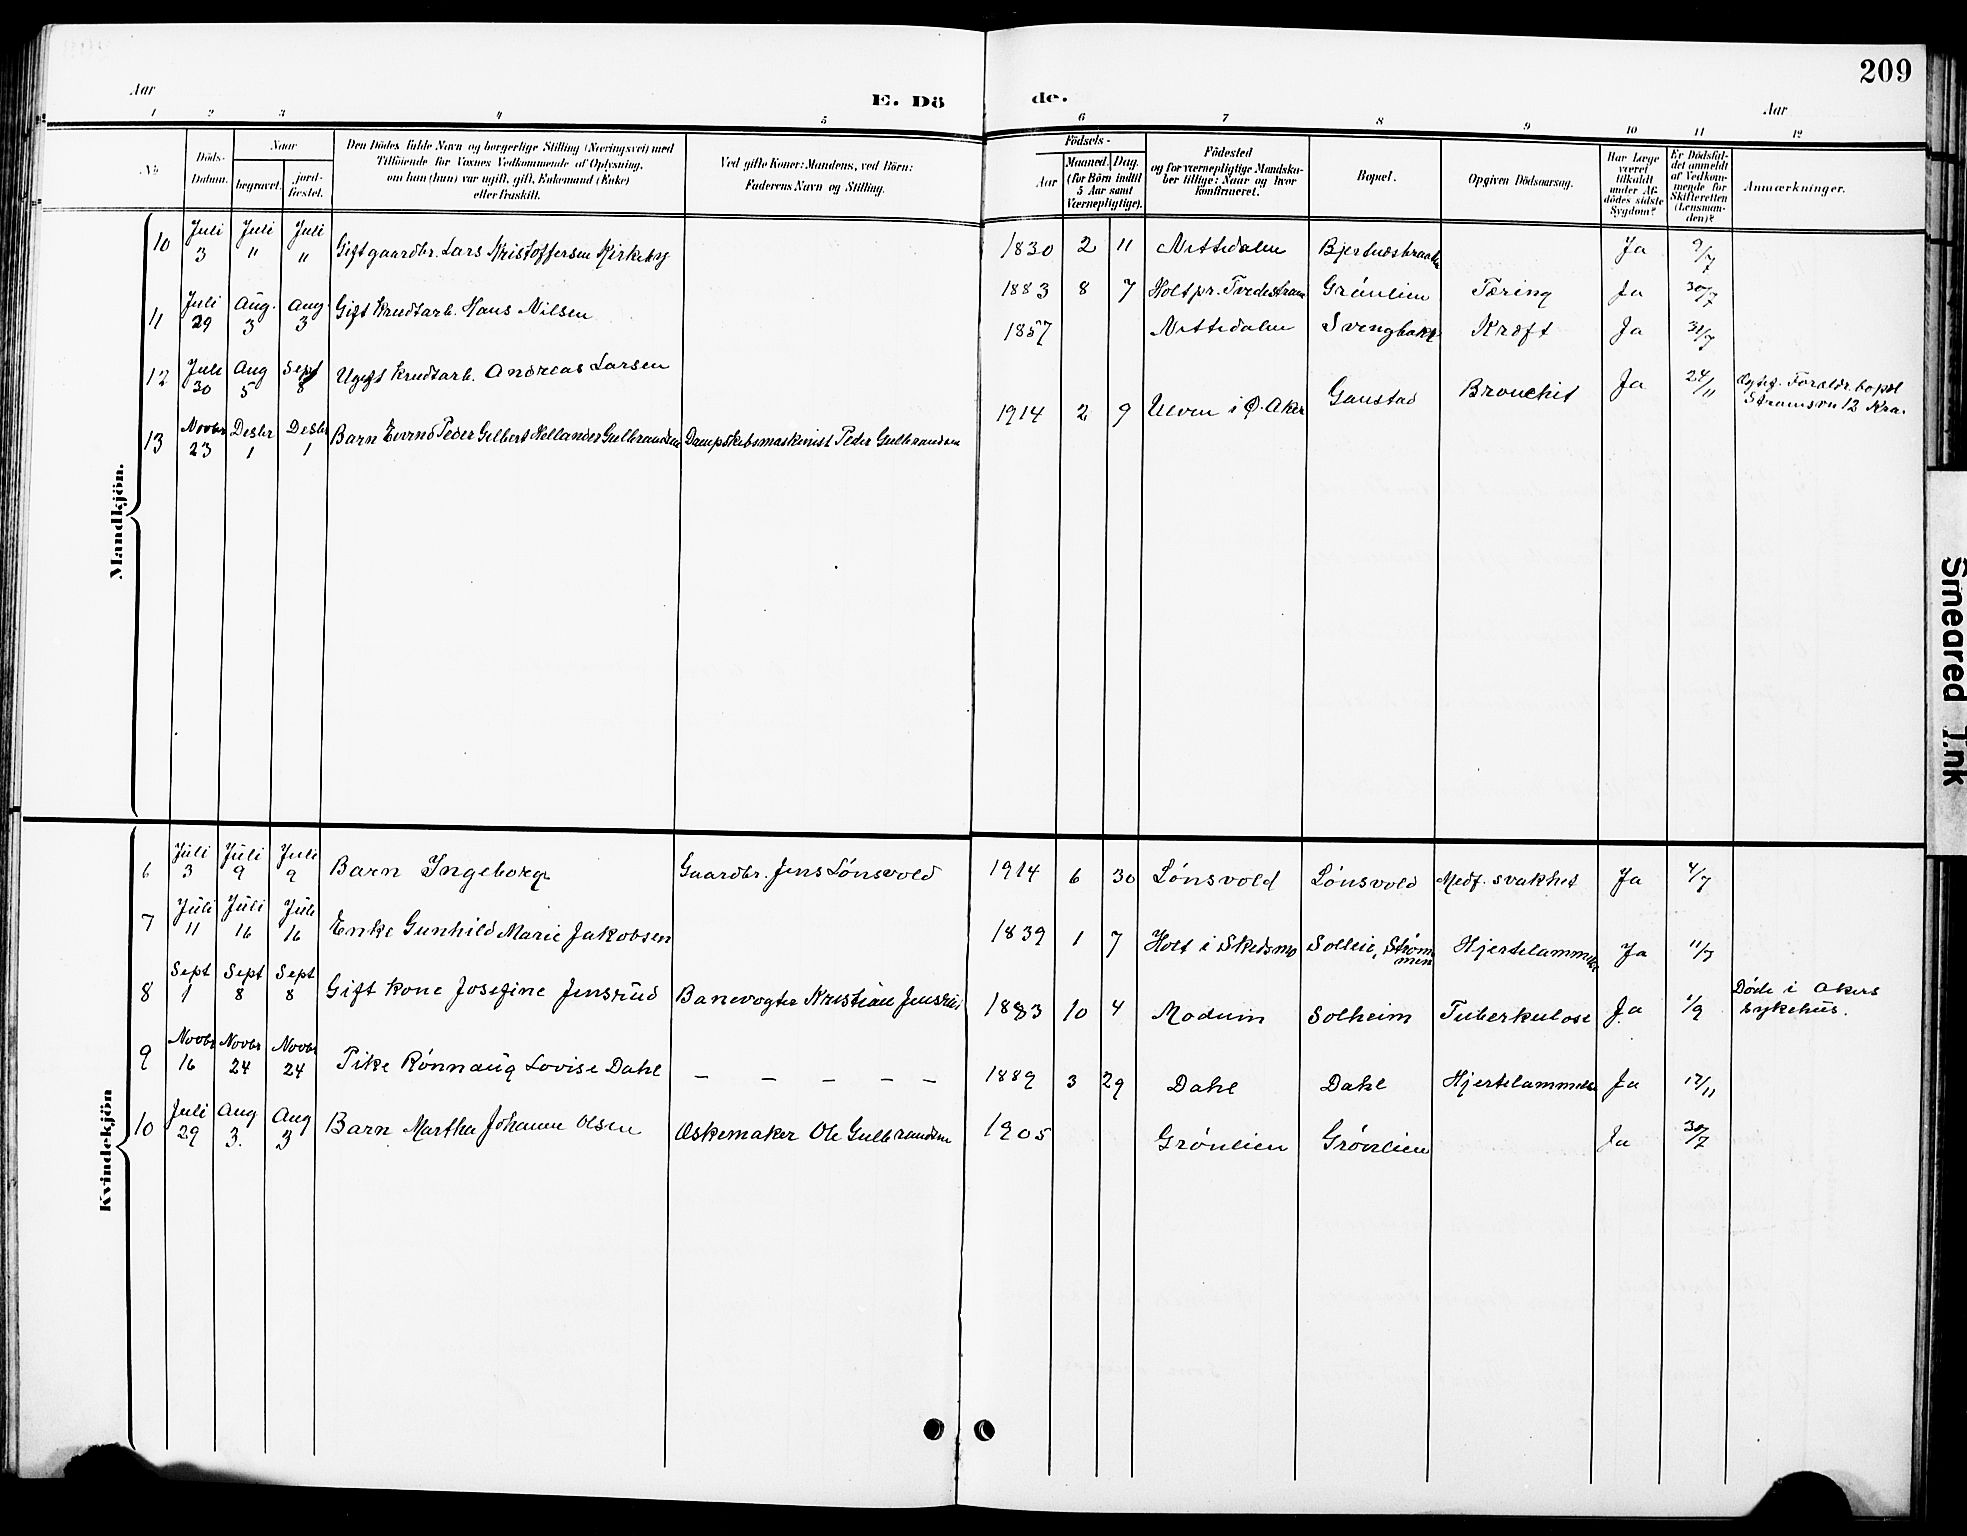 209
Aar
E. Dö
de.
Aar
1 2 3 4 5 6 7 8 9 10 11 12
No.
Döds-
Datum.
Naar
begravet.
jord-
fæstet.
Den Dödes fulde Navn og borgerlige Stilling (Næringsvei) med
Tilföiende for Voxnes Vedkommende af Oplysning,
om han (hun) var ugift, gift, Enkemand (Enke)
eller fraskilt.
Ved gifte Koner: Mandens, ved Börn:
Faderens Navn og Stilling.
Födsels-
Aar
Maaned. Dag.
(for Börn indtil
5 Aar samt
Værnepligtige).
Födested
og for værnepligtige Mandska-
ber tillige: Naar og hvor
konfirmeret.
Bopæl.
Opgiven Dödsaarsag.
Har Læge
været
tilkaldt
under Af-
dödes sidste
Sygdom?
Er Dödsfal-
det anmeldt
af Vedkom-
mende for
Skifteretten
(Lensman-
den)?
Anmærkninger.
Mandkjön.
10 Juli 3 Juli " Juli " Gift gaardbr. Lars Kristoffersen Kirkeby 1830 2 11 Nittedalen Ja 9/7
11 Juli 29 Aug. 3 Aug 3 Gift Krudtarb. Hans Nilsen 1883 8 7 Holt pr. Tvedestrand Grönlien Tæring Ja 30/7
12 Juli 30 Aug 5 Sept 8 Ugift Krudtarb. Andreas Larsen 1857 Nittedalen Svengbakk Kræft Ja 31/7
13 Novbr 23 Desbr 1 Desbr 1 Barn Peder Gilbert Hellander Gulbrandsen Dampskibsmaskinist Peder Gulbrandsen 1914 2 9 Ulven i Ø. Aker Gaustad Bronchit Ja 24/11 Forældr. bopæl
Strømsvn 12 Kra.
Kvindekjön
6 Juli 3 Juli 9 Juli 9 Barn Ingeborg Gaardbr. Jens Lönsvold 1914 6 30 Lönsvold Lönsvold Medf. svakhet Ja 4/7
7 Juli 11 Juli 16 Juli 16 Enke Gunhild Marie Jakobsen 1839 1 7 Holt i Skedsmo Sollie, Strøm
men Hjertelammelse Ja 11/7
8 Sept 1 Sept 8 Sept 8 Gift kone Josefine Jensrud Banevogter Kristian Jensrud 1883 10 4 Modum Solheim Tuberkulose Ja 1/9 Døde i Akers
sykehus.
9 Novbr 16 Novbr 24 Novbr 24 Pike Rönnaug Lovise Dahl – – – – – 1889 3 29 Dahl Dahl Hjertelammelse Ja 17/11
10 Juli 29 Aug 3. Aug 3 Barn Martha Johanne Olsen Æskemaker Ole Gulbrandsen 1905 Grönlien Grönlien Ja 30/7
Smeared Ink